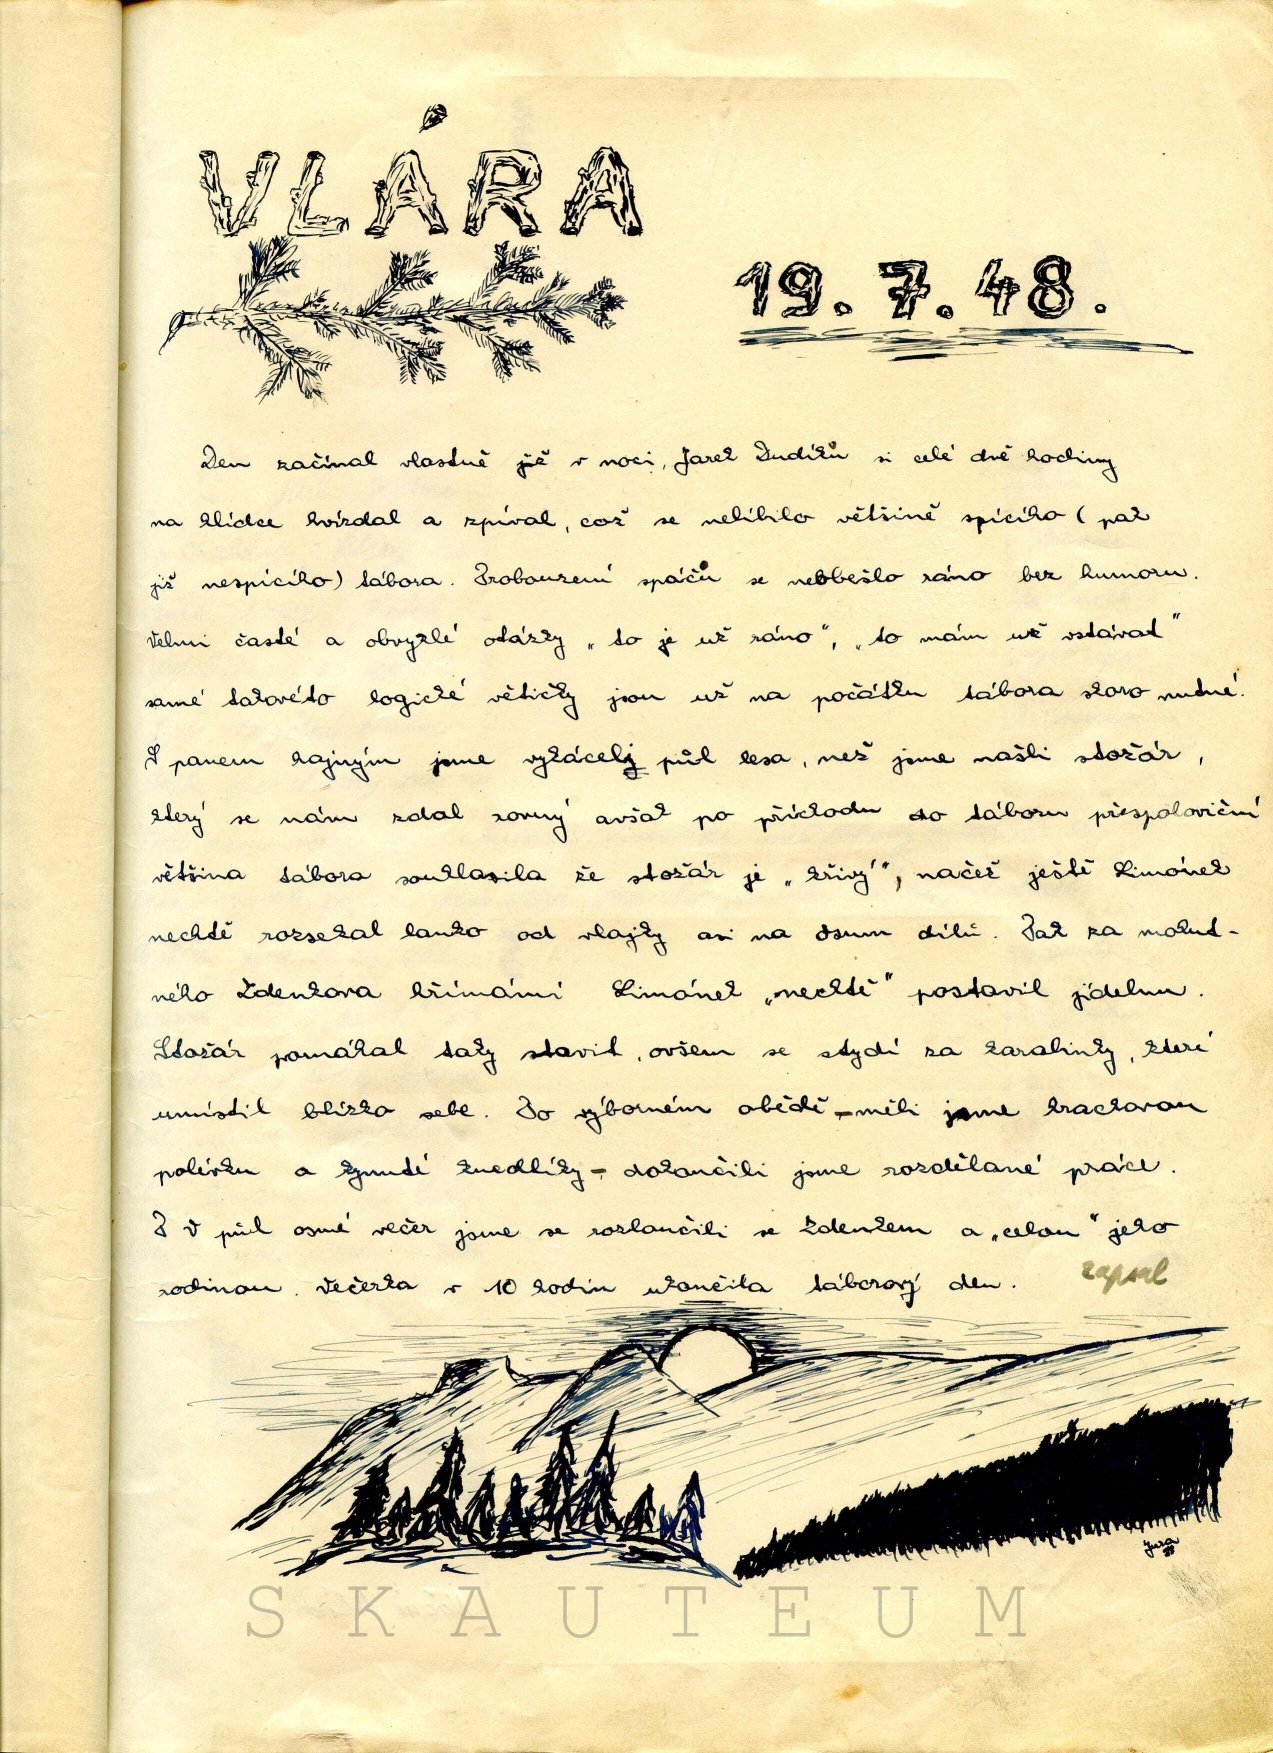 VLÁRA
19.7.48.
Den začínal vlastně již v noci, Jarek Dudíků si celé dvě hodiny
na hlídce hvízdal a zpíval, což se nelíbilo většině spícího (pak
již nespícího) tábora. Probouzení spáčů se neobešlo ráno bez humoru.
Velmi časté a obvyklé otázky „to je už ráno“, „to mám už vstávat“
samé takovéto logické větičky jsou už na počátku tábora skoro nutné.
S panem hajným jsme vykáceli půl lesa, než jsme našli stožár,
který se nám zdál rovný avšak po příchodu do táboru přespoloviční
většina tábora souhlasila že stožár je „křivý“, načež ještě Limónek
nechtě rozsekal lanko od vlajky asi na osum dílů. Pak za mohut-
ného Zdenkova hřímání Limónek „nechtě“ postavil jídelnu.
Stožár pomáhal taky stavit, ovšem se stydí za karabinky, které
umístil blízko sebe. Po výborném obědě – měli jsme hrachovou
polévku a kynuté knedlíky – dokončili jsme rozdělané práce.
V půl osmé večer jsme se rozloučili se Zdenkem a „celou“ jeho
rodinou. Večerka v 10 hodin ukončila táborový den. zapsal
Jura
SKAUTEUM